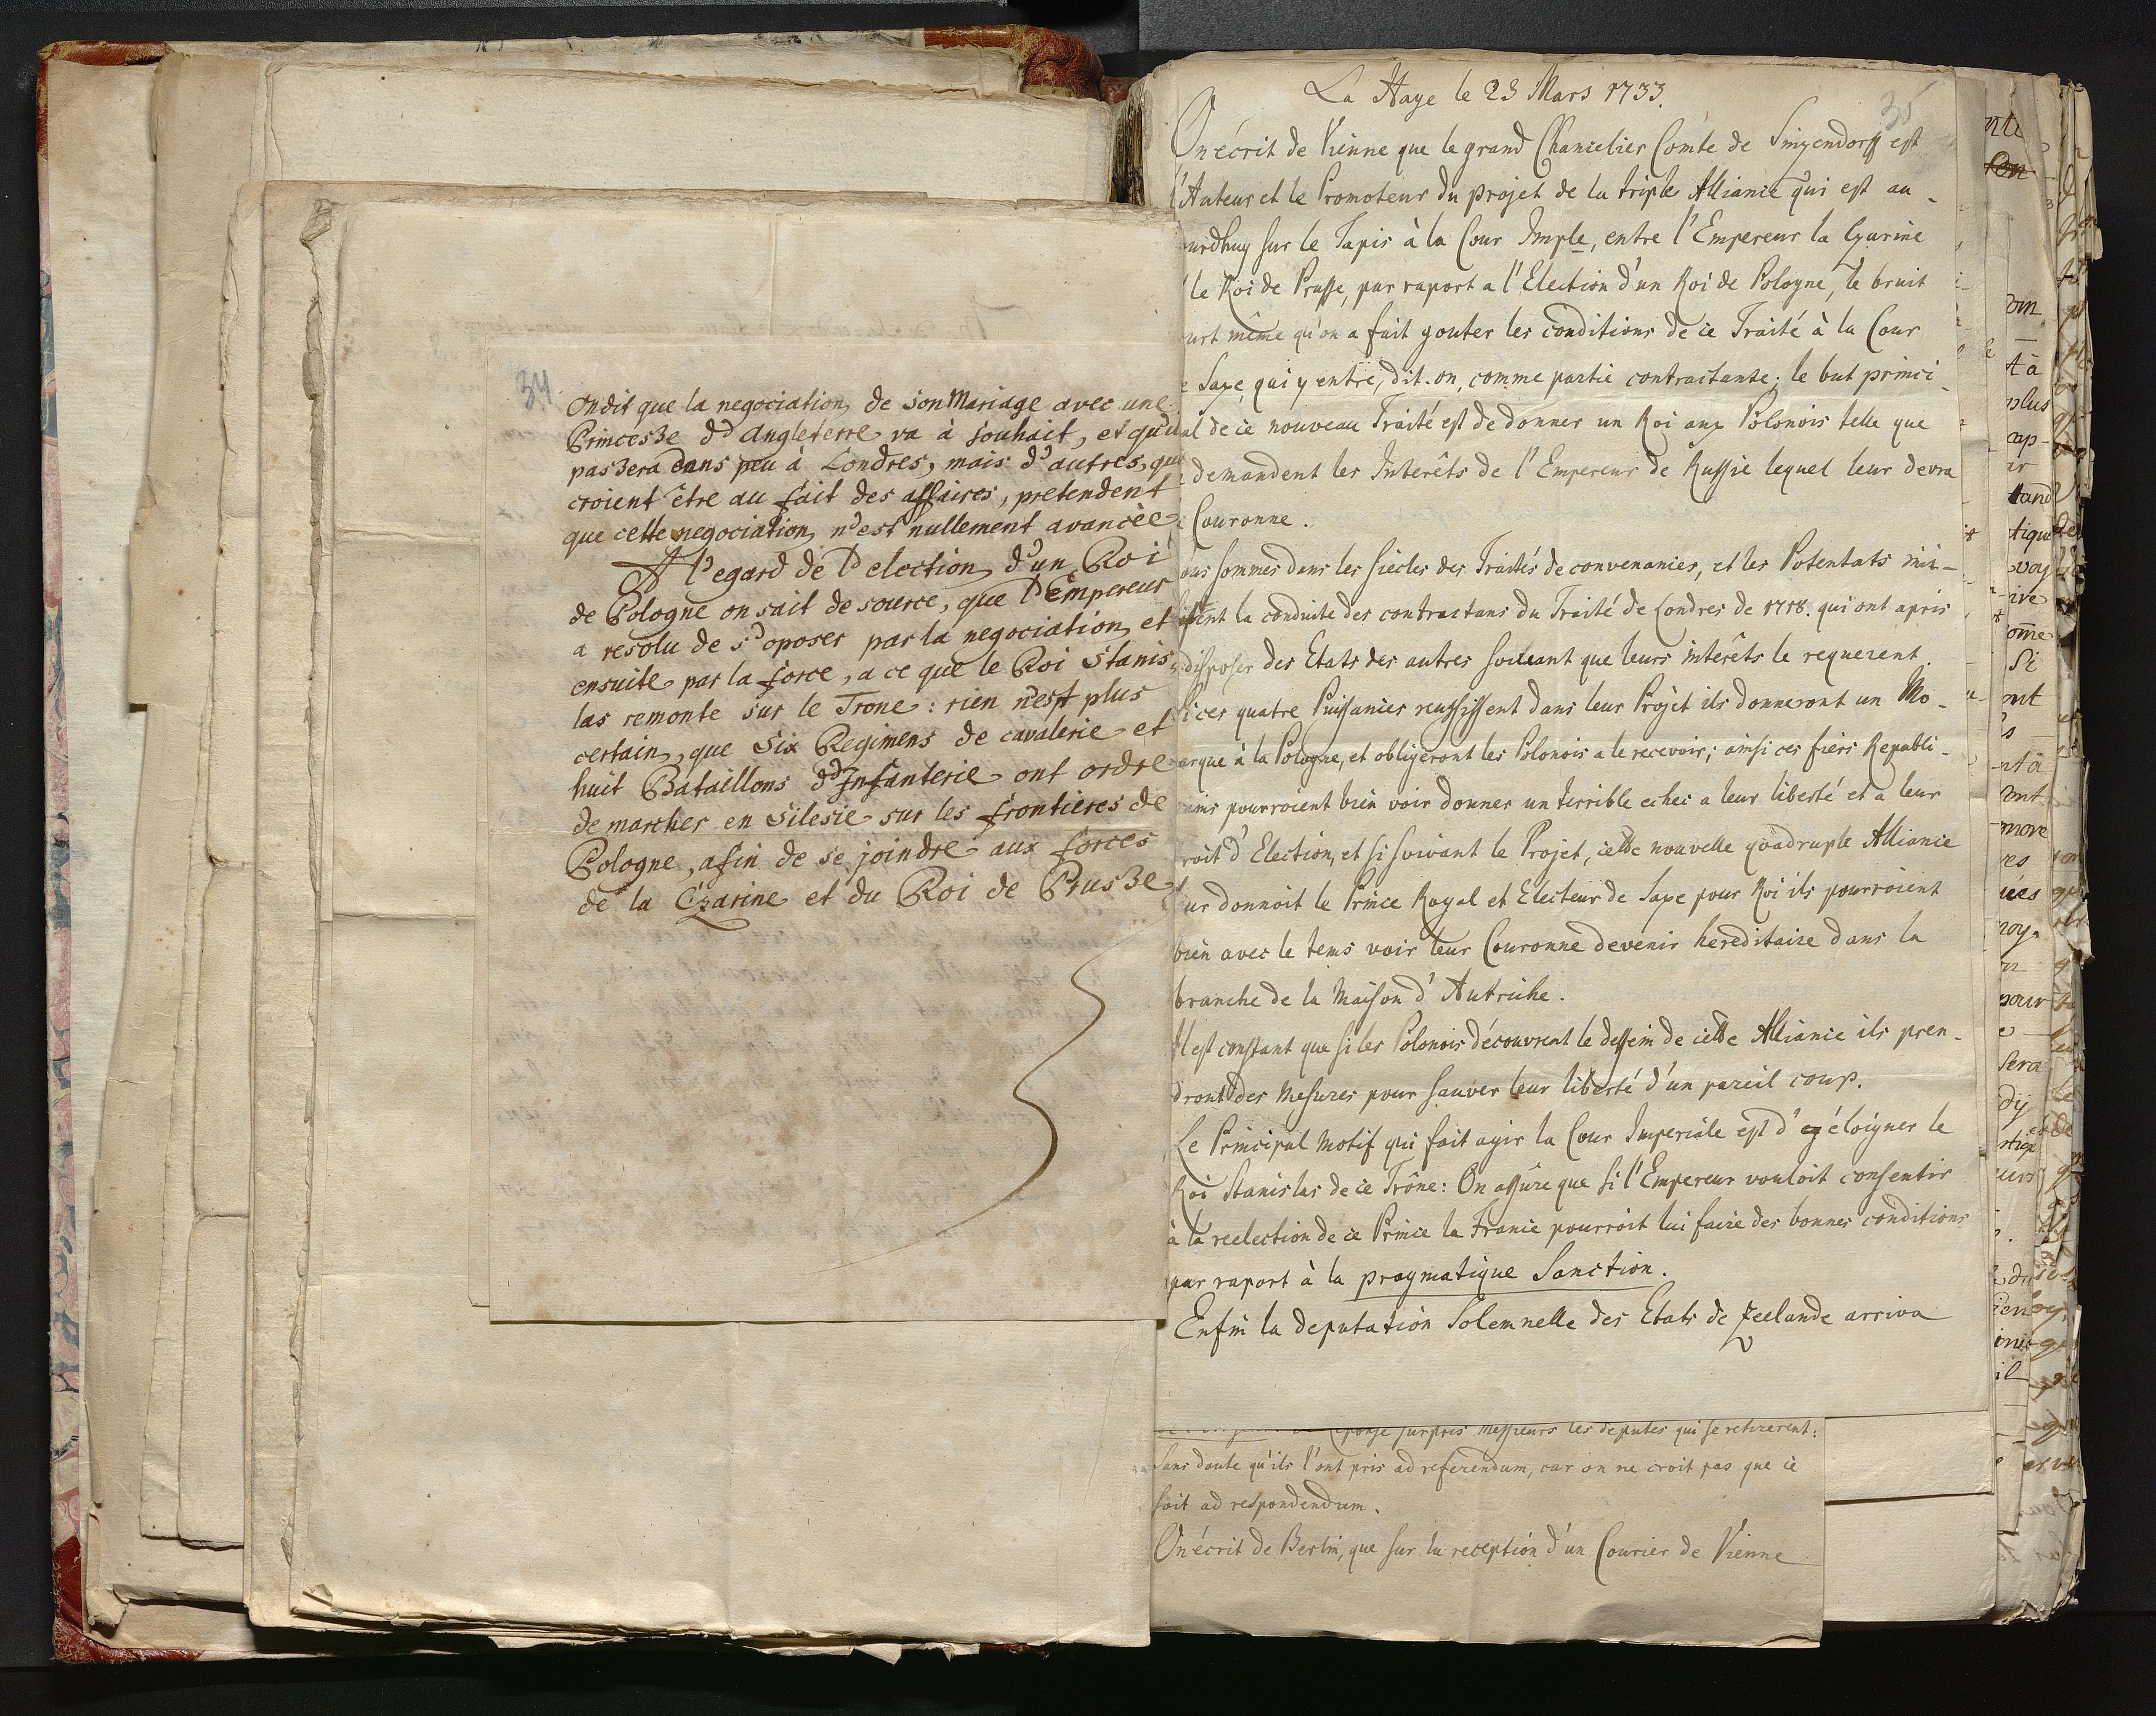 34
on dit que la negociation de son Mariage avec une
Princesse d'Angleterre va à souhait, et qu'il
passera dans peu à Londres, mais d'autres, qui
croient être au fait des affaires, pretendent
que cette negociation n'est nullement avancèe
A l'egard de l'election d'un Roi
de Pologne on sait de source, que l'Empereur
a resolu de s'oposer par la negociation et
ensuite par la force, a ce que le Roi Stanis
las remonte sur le Trone: rien n'est plus
certain, que Six Regimens de cavalerie et
huit Bataillons d'Infanterie ont ordre
de marcher en Silesie sur les frontieres de
Pologne, afin de se joindre aux forces
de la Czarine et du Roi de Prusse
35
La Haye le 23 Mars 1733.
On écrit de Vienne que le grand Chancelier Comte de Sinzendorff est
l'Auteur et le Promoteur du projet de la triple Alliance qui est au-
urdhuy sur le Tapis à la Cour Imple, entre l'Empereur la Czarine
le Roi de Prusse, par raport a l'Election d'un Roi de Pologne, le bruit
urt même qu'on a fait gouter les conditions de ce Traité à la Cour
e Saxe, qui y entre, dit-on, comme partie contractante; le but princi-
al de ce nouveau Traité est de donner un Roi aux Polonois telle que
demandent les Interêts de l'Empereur de Russie lequel leur devra
Couronne.
ous sommes dans les siècles des Traités de convenances, et les Potentats imi-
tent la conduite des contractans du Traité de Londres de 1718. qui ont apris
disposer des Etats des autres suivant que leurs interêts le requerent.
Si ces quatre Puissances reussissent dans leur Projet ils donneront un Mo-
arque à la Pologne, et obligeront les Polonois a le recevoir; ainsi ces fiers Republi-
ains pourroient bien voir donner un terrible echec a leur liberté et a leur
roit d'Election, et si suivant le Projet, cette nouvelle quadruple Alliance
ur donnoit le Prince Royal et Electeur de Saxe pour Roi ils pourroient
bien avec le tems voir leur Couronne devenir hereditaire dans la
branche de la Maison d'Autriche.
Il est constant que si les Polonois découvrent le dessein de cette Alliance ils pren-
dront des Mesures pour sauver leur liberté d'un pareil coup.
Le Principal Motif qui fait agir la Cour Imperiale est d' éloigner le
Roi Stanislas de ce Trône: On assûre que si l'Empereur vouloit consentir
à la reelection de ce Prince la France pourroit lui faire des bonnes conditions
par raport à la pragmatique Sanction.
Enfin la deputation Solemnelle des Etats de Zeelande arriva
surpris Messieurs les deputes qui se retirerent:
Sans doute qu'ils l'ont pris ad referendum, car on ne croit pas que ce
soit ad respondendum.
On écrit de Berlin, que sur la reception d'un Courier de Vienne